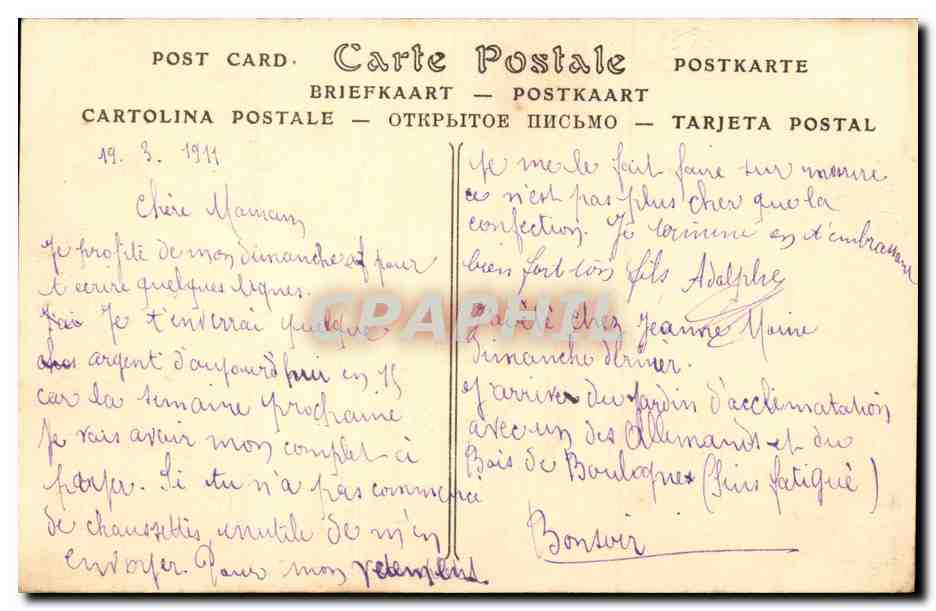 POST CARD. Carte Postale POSTKARTE
BRIEFKAART — POSTKAART
CARTOLINA POSTALE — ОТКРЫТОЕ ПИСЬМО — TARJETA POSTAL
19. 3. 1911
Chère Maman
Je profite de mon dimanche pour
t ecrire quelques lignes.
Je t'enverrai quelque
argent d'aujourd'hui en 15
car la semaine prochaine
Je vais avoir mon complet à
payer. Si tu n'a pas commencé
de chaussettes, inutile de m'en
envoyer. Pour mon vetement
Je me le fait faire sur mesure
ce n'est pas plus cher que la
confection. Je termine en t'embrassant
bien fort ton fils Adolphe
chez Jeanne Moine
dimanche dernier.
J'arrive du Jardin d'acclimatation
avec un des Allemands et du
Bois de Boulogne (suis fatigué)
Bonsoir
CPAPHIL